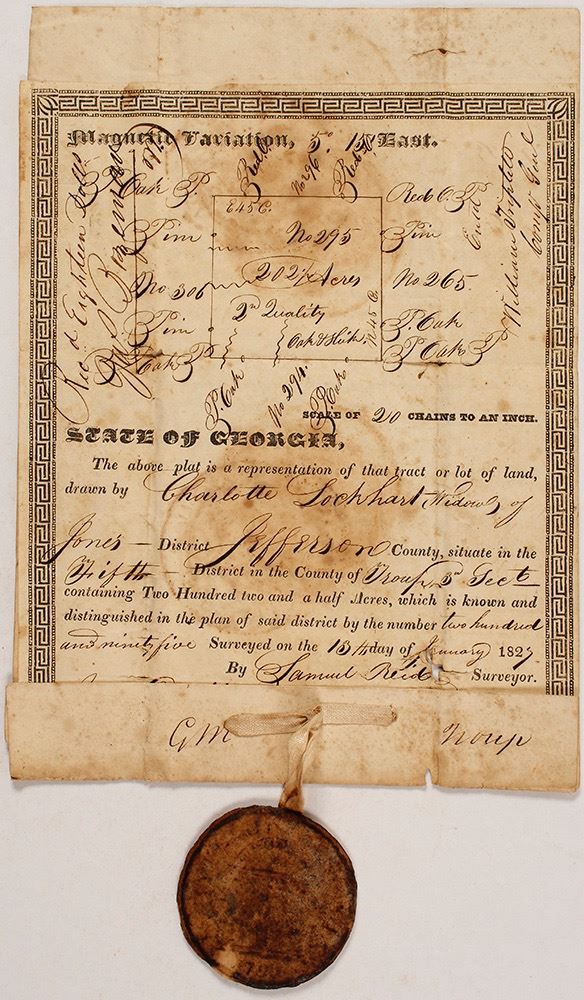 Magnetic Variation, 5° 15' East.
Rec'd Eighteen Dolls
Red O.
No 296
Red O.
Oak P.
Red O. P
William Triplett
Pine
E 45 C.
No 295
Pine
No 306
202½ Acres
No 265
2d Quality
N 45 C.
Pine
Oak & Hick.
P. Oak
Oak P
P Oak P
P. Oak
No 294.
P. Oak
SCALE OF 20 CHAINS TO AN INCH.
STATE OF GEORGIA,
The above plat is a representation of that tract or lot of land,
drawn by Charlotte Lockhart Widow, of
Jones District Jefferson County, situate in the
Fifth District in the County of Troup, Sect
containing Two Hundred two and a half Acres, which is known and
distinguished in the plan of said district by the number two hundred
and ninety five Surveyed on the 13th day of January 1827
By Samuel Reid Surveyor.
G M Troup